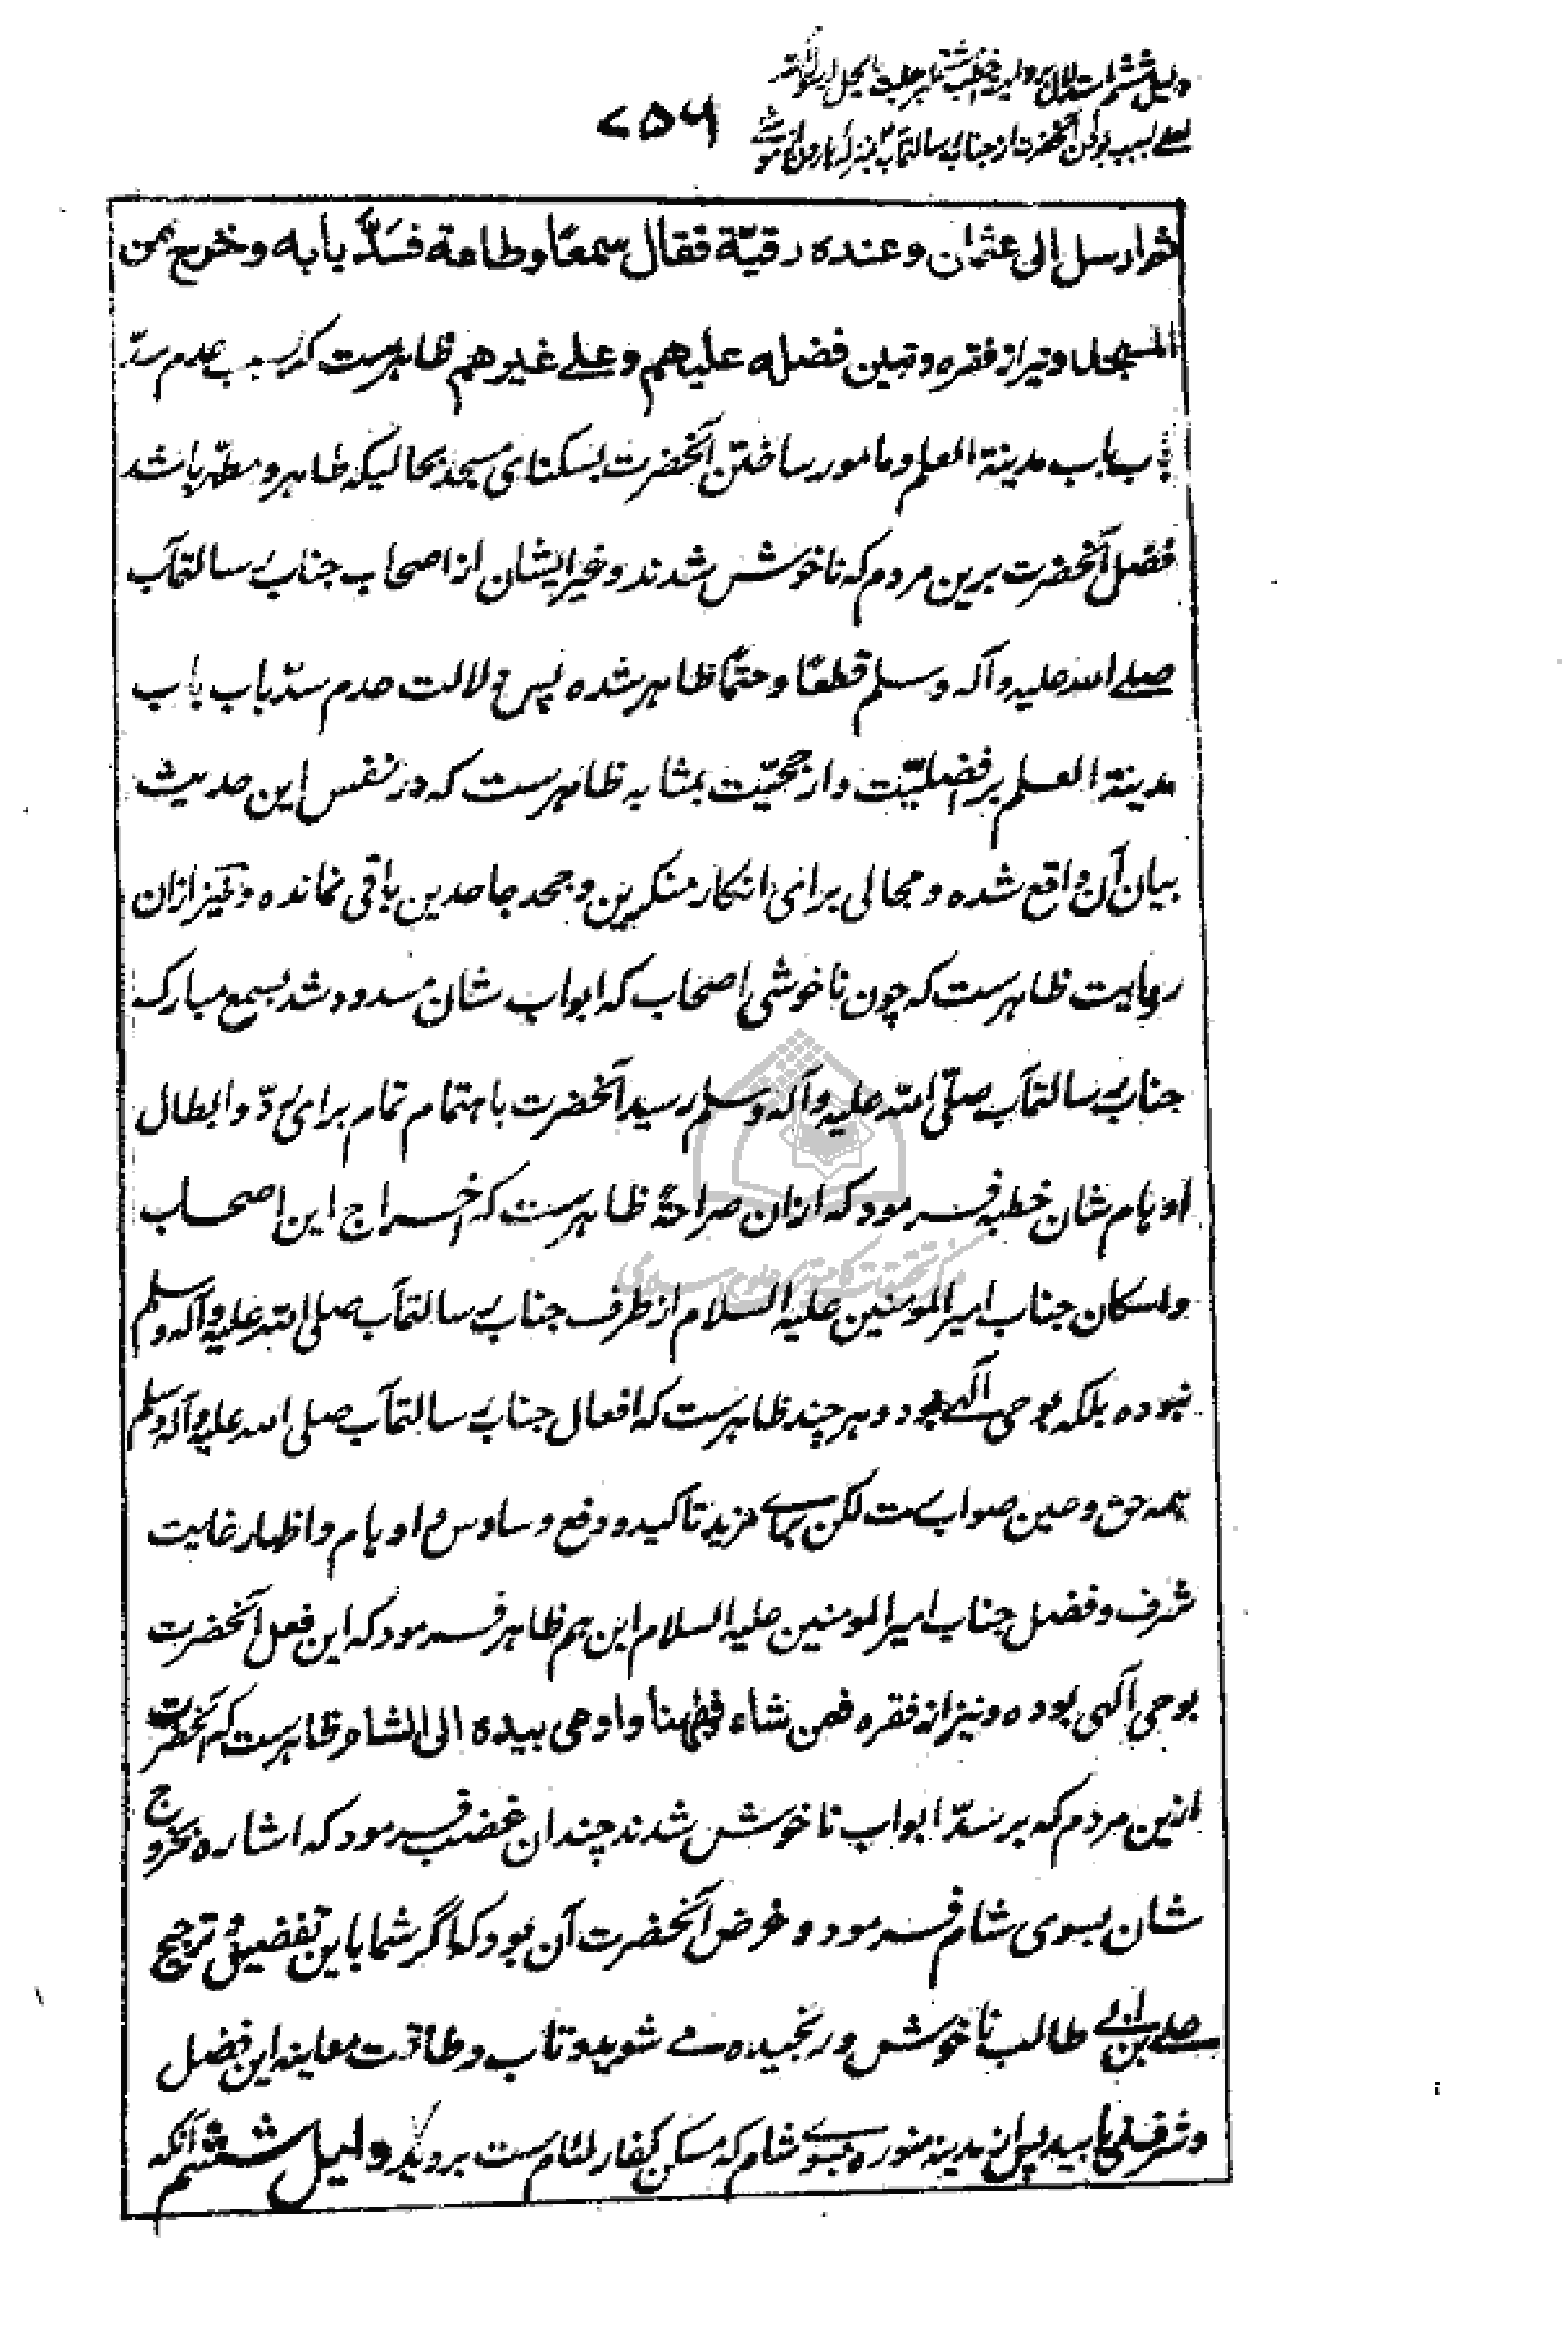 دلیل ششم استدلال بروایت خطبه مشتمله بر حلیت
لعلی بسبب بودن آنحضرت از جناب رسالتمآب بمنزله هارون از موسی
۷۵۶
ثم ارسل الی عثمان و عنده رقیّة فقال سمعًا و طاعة فسَدَّ بابه و خرج من
المسجد و نیز از فقره و تبین فضله علیهم و علے غیرهم ظاهرست که بسبب عدم سدّ
باب باب مدینة العلم و مامور ساختن آنحضرت بسکنای مسجد بحالیکه طاهر و مطهّر باشد
فضل آنحضرت برین مردم که ناخوش شدند و غیر ایشان از اصحاب جناب رسالتمآب
صلے الله علیه و آله و سلم قطعًا و حتمًا ظاهر شده پس دلالت عدم سدّ باب باب
مدینة العلم بر افضلیّت و ارجحیّت بمثابه ظاهرست که در نفس این حدیث
بیان آن واقع شده و مجالی برای انکار منکرین و جحد جاحدین باقی نمانده و نیز ازان
روایت ظاهرست که چون ناخوشی اصحاب که ابواب شان مسدود شد بسمع مبارک
جناب رسالتمآب صلّی الله علیه و آله و سلم رسید آنحضرت باهتمام تمام برای ردّ و ابطال
اوهام شان خطبه فرمود که ازان صراحةً ظاهرست که اخراج این اصحاب
و اسکان جناب امیرالمومنین علیه السلام از طرف جناب رسالتمآب صلی الله علیه و آله و سلم
نبوده بلکه بوحی آلهی بود و هر چند ظاهرست که افعال جناب رسالتمآب صلی الله علیه و آله و سلم
همه حق و عین صوابست لکن برای مزید تاکید و دفع وساوس و اوهام و اظهار غایت
شرف و فضل جناب امیرالمومنین علیه السلام این هم ظاهر فرمود که این فعل آنحضرت
بوحی آلهی بوده و نیز از فقره فمن شاء فههنا و اومی بیده الی الشام ظاهرست که آنحضرت
ازین مردم که بر سدّ ابواب ناخوش شدند چندان غضب فرمود که اشاره بخروج
شان بسوی شام فرمود و غرض آنحضرت آن بود که اگر شما باین تفضیل و ترجیح
علے بن ابی طالب ناخوش و رنجیده مے شوید و تاب و طاقت معاینه این فضل
و شرف نمی یابید پس از مدینه منوره بسوے شام که مسکن کفار لئام ست بروید دلیل ششم آنکه